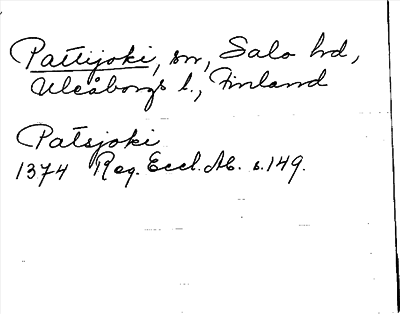 Pattijoki, sn, Salo hd,
Uleåborgs l., Finland
Patsjoki
1374 Reg. Eccl. Ab. s. 149.